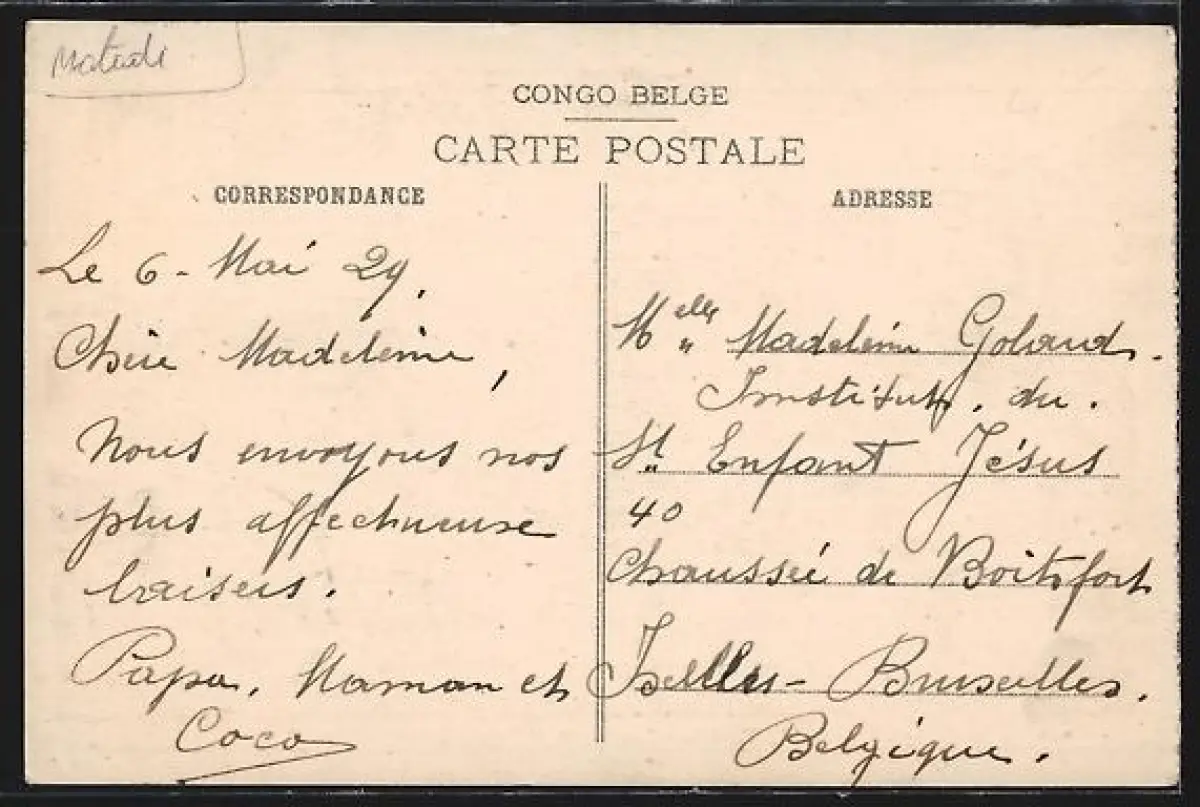 Matadi
CONGO BELGE
CARTE POSTALE
CORRESPONDANCE
Le 6 - Mai 29.
Chère Madeleine,
Nous envoyons nos
plus affectueuse
baisers.
Papa, Maman et
Coco
ADRESSE
Melle Madeleine
Institut. du.
St Enfant Jésus
40
Chaussée de Boitsfort
Ixelles - Bruxelles.
Belgique.